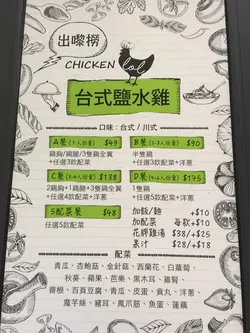 出嚟撈
CHICKEN
lol
台式鹽水雞
口味：台式 / 川式
A餐 (1人份量) $49
雞胸/雞腿/3隻雞全翼
+任選3款配菜+洋蔥
B餐 $90
半隻雞
+任選3款配菜+洋蔥
C餐 $138
2雞胸+1雞腿+3隻雞全翼
+任選4款配菜+洋蔥
D餐 $175
1隻雞
+任選5款配菜+洋蔥
5配菜餐 $48
任選5款配菜
加飯/麵 +$10
加配菜 每款+$10
花膠雞湯 $38/+$25
果汁 $28/+$18
配菜
青瓜、杏鮑菇、金針菇、西蘭花、白蘿蔔、
秋葵、蘋果、芭樂、黑木耳、雞腎、
齋根、百頁豆腐、青瓜、皮蛋、貢丸、洋蔥、
魔芋絲、豬耳、鳳爪筋、魚蛋、蓮藕